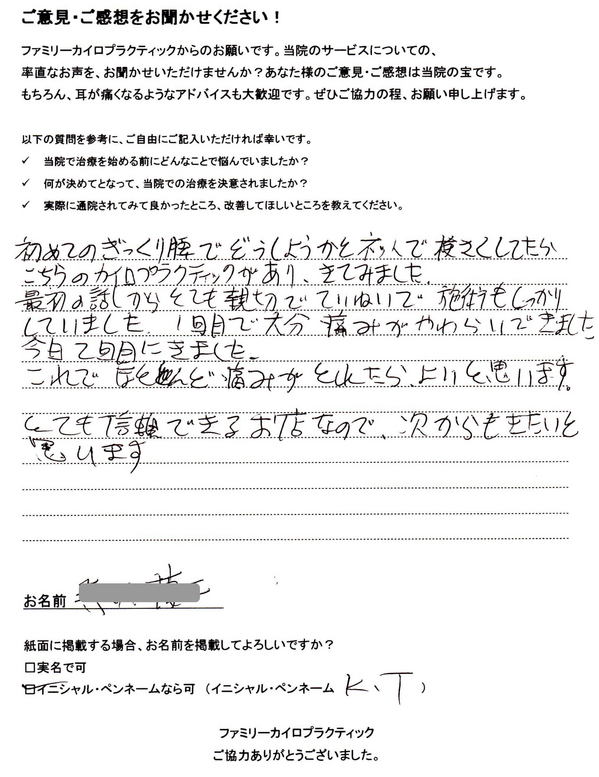 ご意見・ご感想をお聞かせください！
ファミリーカイロプラクティックからのお願いです。当院のサービスについての、
率直なお声を、お聞かせいただけませんか？あなた様のご意見・ご感想は当院の宝です。
もちろん、耳が痛くなるようなアドバイスも大歓迎です。ぜひご協力の程、お願い申し上げます。
以下の質問を参考に、ご自由にご記入いただければ幸いです。
✓ 当院で治療を始める前にどんなことで悩んでいましたか？
✓ 何が決めてとなって、当院での治療を決意されましたか？
✓ 実際に通院されてみて良かったところ、改善してほしいところを教えてください。
初めてのぎっくり腰でどうしようかとネットで検さくしてたら
こちらのカイロプラクティックがあり、きてみました。
最初の話しからとても親切でていねいで施術もしっかり
していました 1回目で大分痛みがやわらいできました
今日で2回目にきました。
これでほとんど痛みがとれたら、よいと思います。
とても信頼できるお店なので、次からもきたいと
思います
お名前
紙面に掲載する場合、お名前を掲載してよろしいですか？
□実名で可
□イニシャル・ペンネームなら可（イニシャル・ペンネーム K.T ）
ファミリーカイロプラクティック
ご協力ありがとうございました。